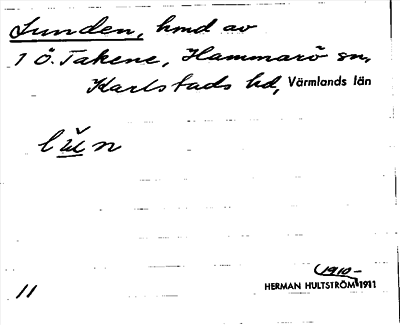 Sunden, hmd av
1 Ö. Takene, Hammarö sn,
Karlstads hd, Värmlands län
lŭn
1910-
HERMAN HULTSTRÖM 1911
11